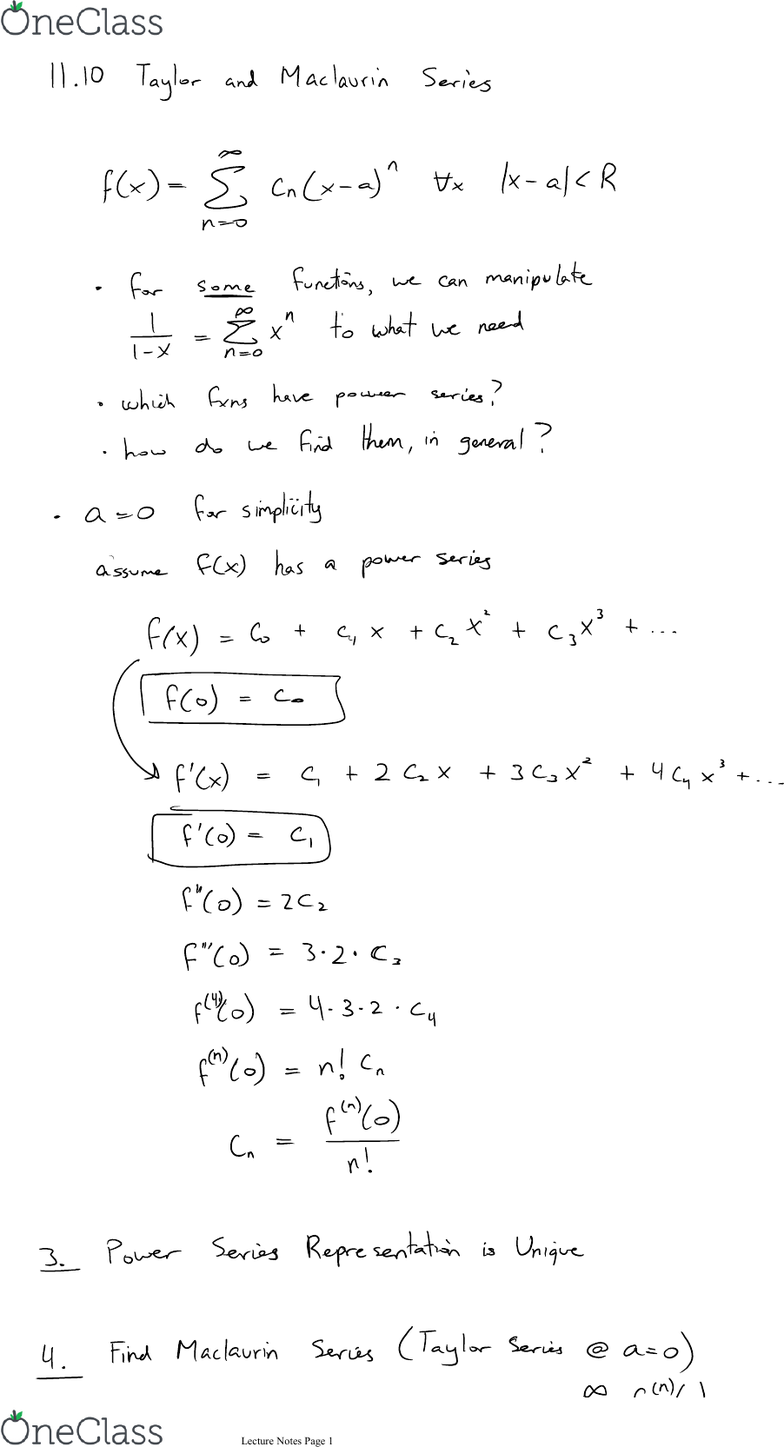 OneClass
11.10 Taylor and Maclaurin Series
f(x) = ∞ Σ n=0 cₙ(x-a)ⁿ ∀x |x-a| < R
• for some functions, we can manipulate
1/(1-x) = ∞ Σ n=0 xⁿ to what we need
• which fxns have power series?
• how do we find them, in general?
• a=0 for simplicity
assume f(x) has a power series
f(x) = c₀ + c₁x + c₂x² + c₃x³ + ...
f(0) = c₀
f'(x) = c₁ + 2c₂x + 3c₃x² + 4c₄x³ + ...
f'(0) = c₁
f''(0) = 2c₂
f'''(0) = 3·2·c₃
f⁽⁴⁾(0) = 4·3·2·c₄
f⁽ⁿ⁾(0) = n! cₙ
cₙ = f⁽ⁿ⁾(0)/n!
3. Power Series Representation is Unique
4. Find Maclaurin Series (Taylor Series @ a=0)
∞
OneClass
Lecture Notes Page 1